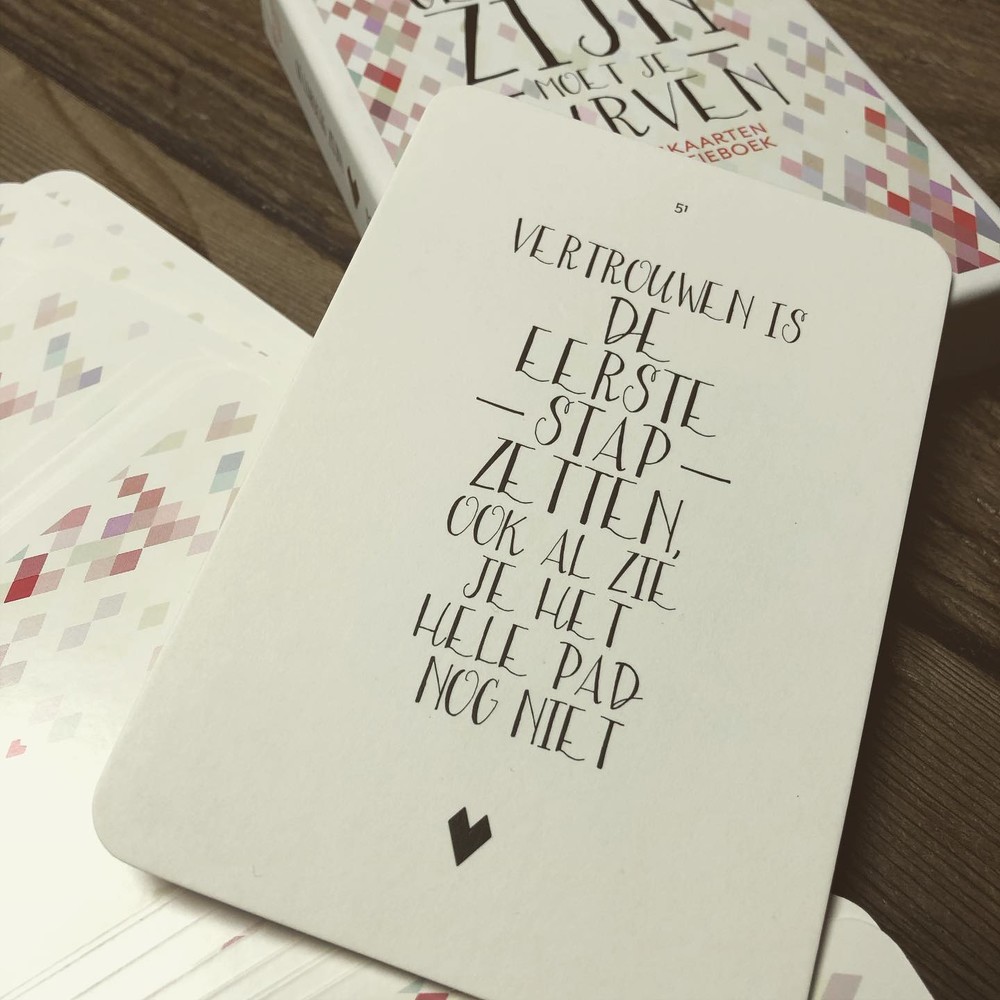 ZIJN
MOET JE
51
VERTROUWEN IS
DE
EERSTE
STAP
ZETTEN,
OOK AL ZIE
JE HET
HELE PAD
NOG NIET